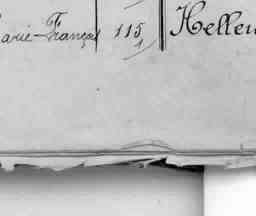 arie-Françai 115 Helleu